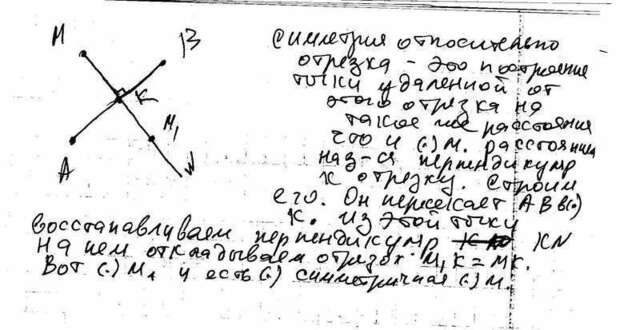 М
В
К
М₁
А
N
Симметрия относительно
отрезка - это построение
точки удаленной от
этого отрезка на
такое же расстояние
что и (.) М. расстояние
наз-ся перпендикуляр
к отрезку. Строим
его. Он пересекает АВ в (.)
К. из этой точки
восстанавливаем перпендикуляр KN
на нем откладываем отрезок M₁K = MK.
Вот (.) М₁ и есть (.) симметричная (.) М.